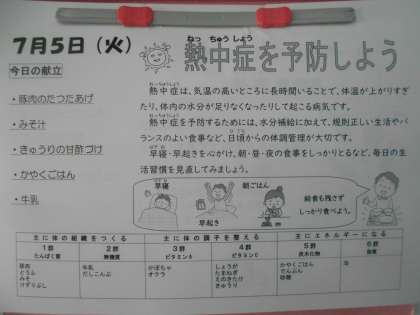 7月5日（火）
ねっちゅうしょう
熱中症を予防しよう
今日の献立
・豚肉のたつたあげ
・みそ汁
・きゅうりの甘酢づけ
・かやくごはん
・牛乳
熱中症は、気温の高いところに長時間いることで、体温が上がりすぎ
たり、体内の水分が足りなくなったりして起こる病気です。
熱中症を予防するためには、水分補給に加えて、規則正しい生活やバ
ランスのよい食事など、日頃からの体調管理が大切です。
早寝・早起きを心がけ、朝・昼・夜の食事をしっかりとるなど、毎日の生
活習慣を見直してみましょう。
早寝
早起き
朝ごはん
給食も残さず
しっかり食べよう。
主に体の組織をつくる
主に体の調子を整える
主にエネルギーになる
1群 2群 3群 4群 5群 6群
たんぱく質 無機質 ビタミンA ビタミンC 炭水化物 脂質
豚肉
とうふ
みそ
けずりぶし
牛乳
だしこんぶ
かぼちゃ
オクラ
しょうが
たまねぎ
えのきたけ
きゅうり
かやくごはん
でんぷん
砂糖
油